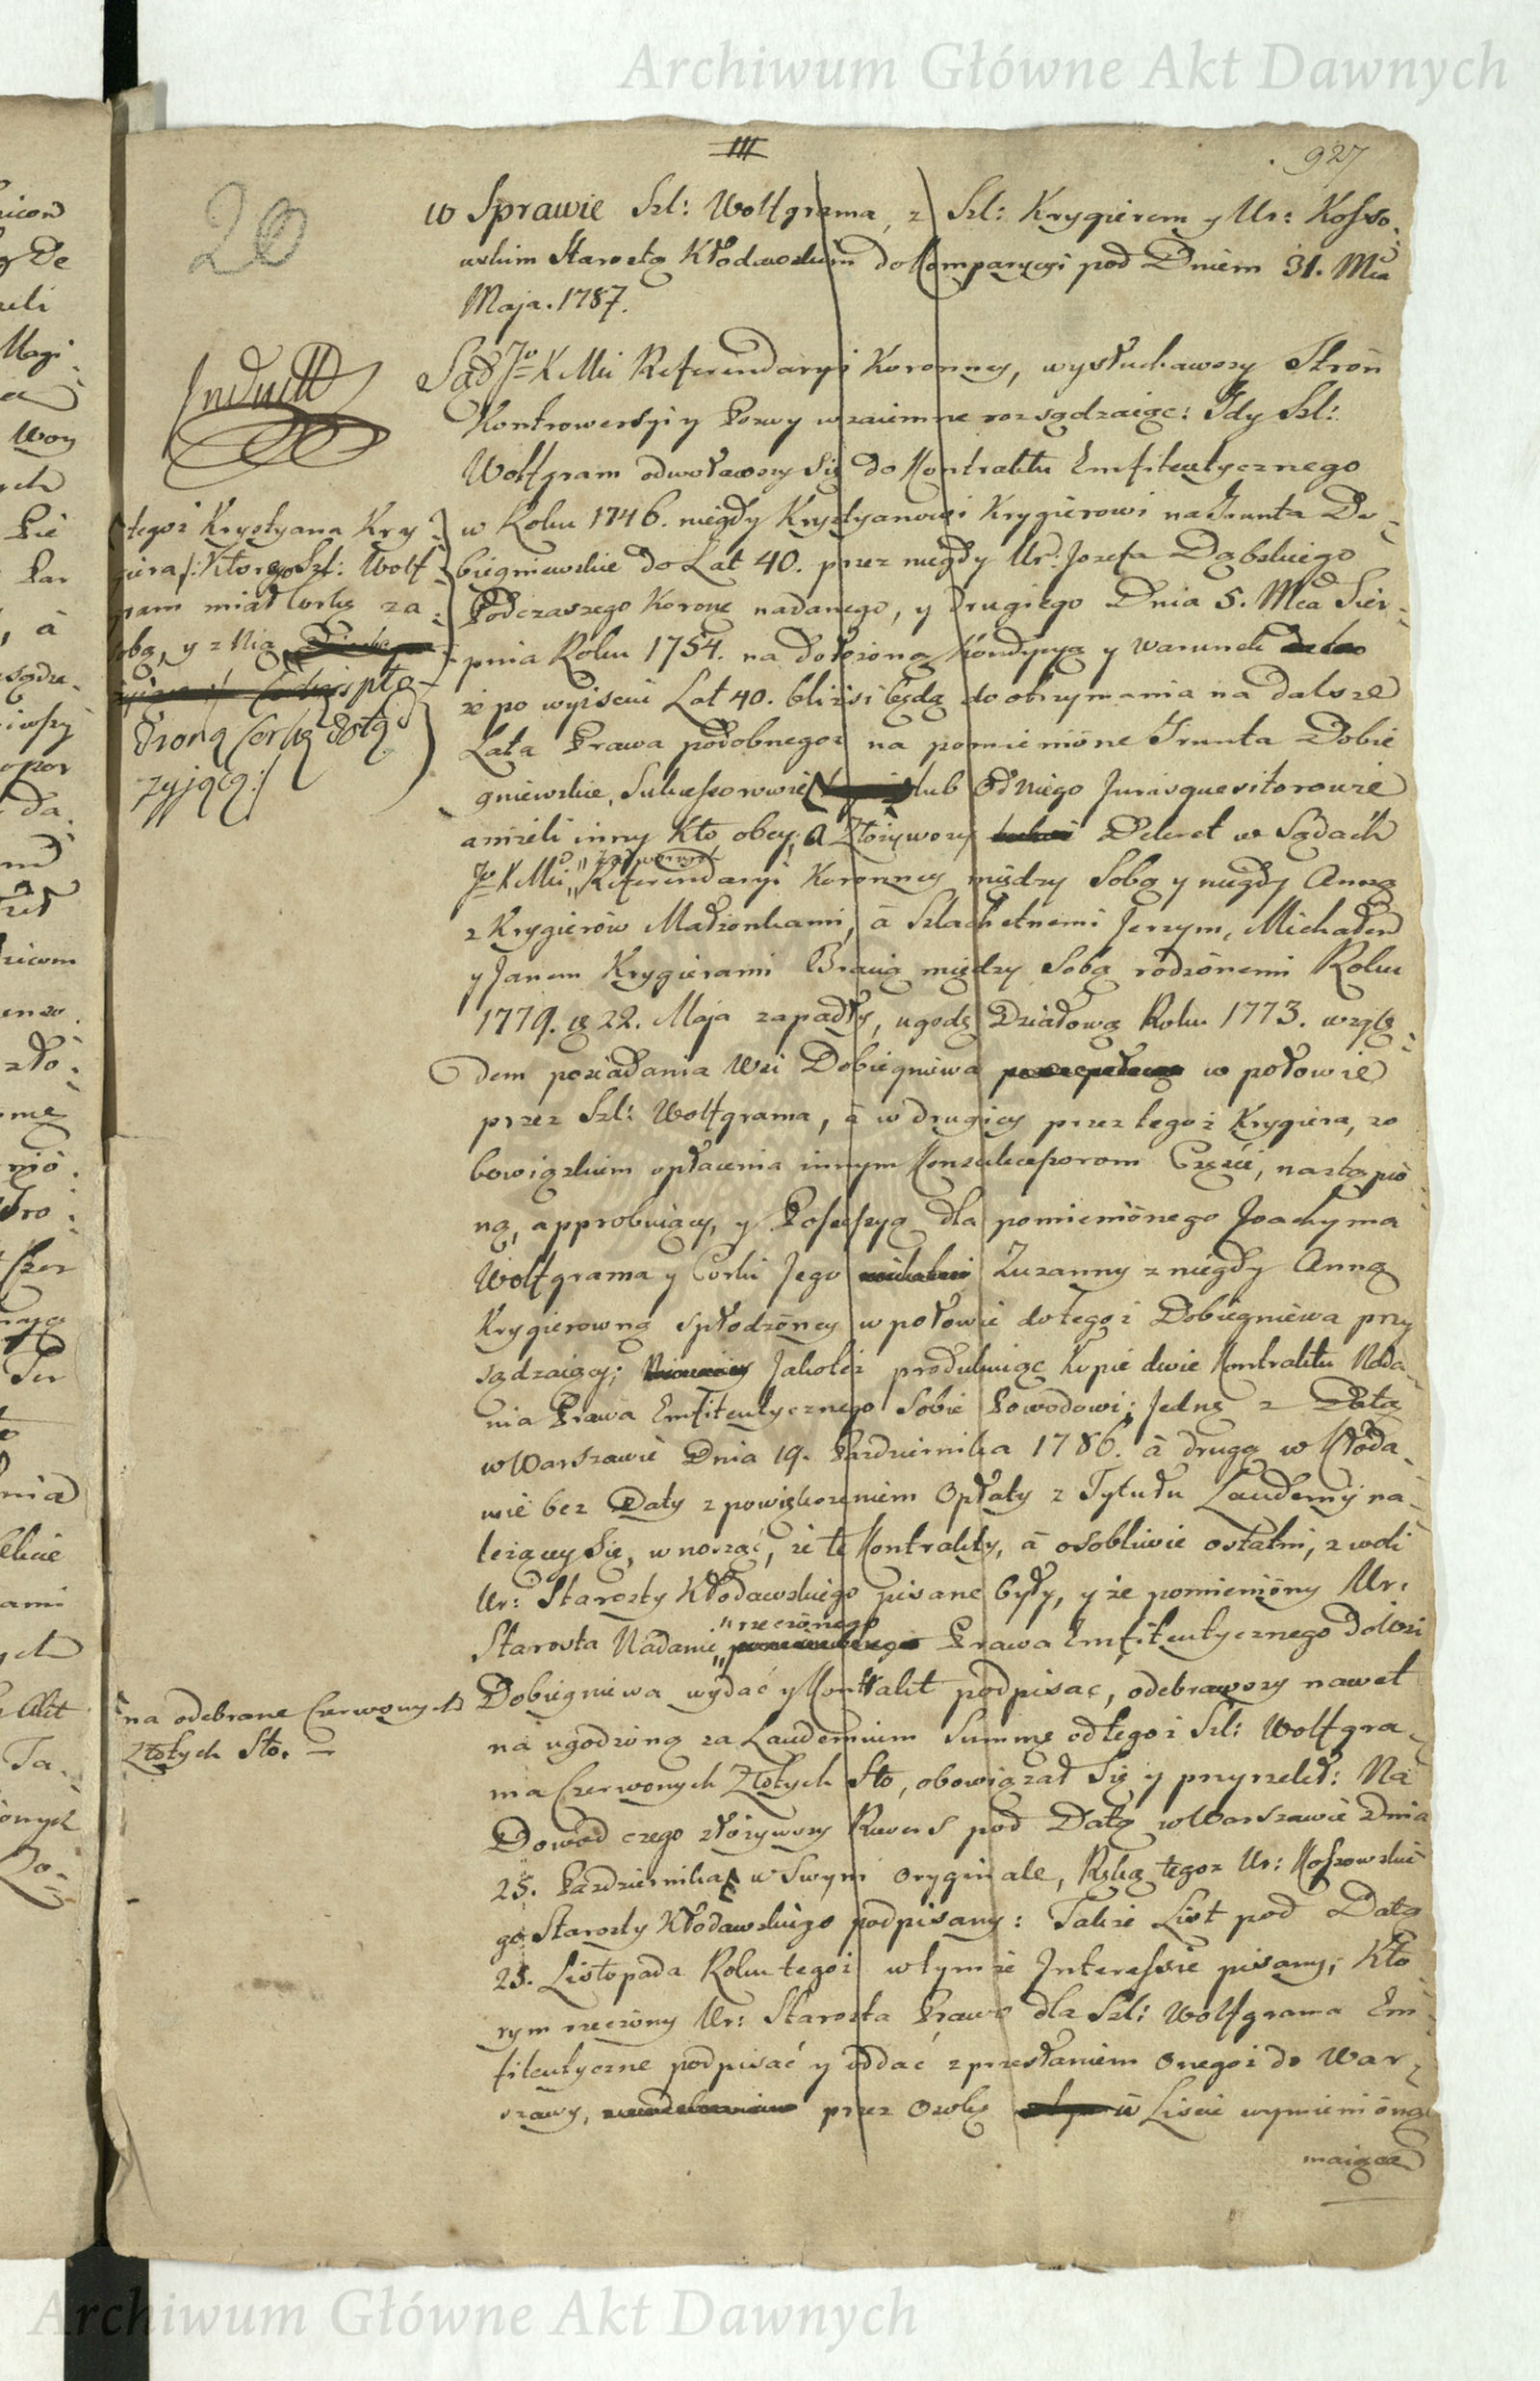 Archiwum Główne Akt Dawnych
III
927
20
w Sprawie Szl: Wolfgrama, z Szl: Krygierem y Ur: Kosso-
wskim Starostą Kłodawskim do Komparycyi pod Dniem 31. Mca
Maja. 1787.
Sąd Jo K Mci Referendaryi Koronney, wysłuchawszy Stron
Kontrowersyi y Pozwy wzaiemne rozsądzaiąc: Gdy Szl:
Wolfgram odwoławszy się do Kontraktu Emfiteutycznego
w Roku 1746. niegdy Krystyanowi Krygierowi na Grunta Do-
biegniewskie do Lat 40. przez niegdy Ur: Jozefa Dąbskiego
Podczaszego Koronn: nadanego, y drugiego Dnia 5. Mca Sier-
pnia Roku 1754. na dołożoną Kondycyą y warunek
że po wyiściu Lat 40. bliżsi będą do otrzymania na dalsze
Lata Prawa podobnegoż na pomienione Grunta Dobie
gniewskie, Sukcessorowie lub od niego Jurisquesitorowie
aniżeli inny kto obcy; a Złożywszy Dekret w Sądach
Jo K Mci "Zadwornych Referendaryi Koronney między Sobą y niegdy Anną
z Krygierow Małżonkami, à Szlachetnemi Jerzym, Michałem
y Janem Krygierami Bracią między Sobą rodzonemi Roku
1779. 22. Maja zapadły, ugodę Działową Roku 1773. wzglę-
dem posiadania Wsi Dobiegniewa w połowie
przez Szl: Wolfgrama, à w drugiey przez tegoż Krygiera, zo
bowiązkiem opłacenia innym Konsukcessorom Części, nastąpio-
ną, approbuiący, y Possessyą dla pomienionego Joachyma
Wolfgrama y Corki Jego Zuzanny z niegdy Anną
Krygierowną spłodzoney w połowie do tegoż Dobiegniewa przy
sądzaiący; Jakoteż produkuiąc Kopie dwie Kontraktu Nada-
nia Prawa Emfiteutycznego Sobie Powodowi; Jednę z Datą
w Warszawie Dnia 19. Pazdziernika 1786. à drugą w Kłoda-
wie bez Daty z powiększeniem Opłaty z Tytułu Laudemij na-
leżącey Się, wnosząc, że te Kontrakty, à osobliwie ostatni, z woli
Ur: Starosty Kłodawskiego pisane były, y że pomieniony Ur:
Starosta Nadanie "rzeczonego Prawa Emfiteutycznego do Wsi
Dobiegniewa wydać y Kontrakt podpisać, odebrawszy nawet
na ugodzoną za Laudemium Summę od tegoż Szl: Wolfgra-
ma Czerwonych Złotych Sto, obowiązał Się y przyrzekł: Na
Dowod czego złożywszy Rewers pod Datą w Warszawie Dnia
25. Pazdziernika w Swym Oryginale, Ręką tegoż Ur: Kossowskie
go Starosty Kłodawskiego podpisany: Także List pod Datą
25. Listopada Roku tegoż w tymże Interessie pisany; Kto-
rym rzeczony Ur: Starosta Prawo dla Szl: Wolfgrama Em-
fiteutyczne podpisać y oddać z przesłaniem onegoż do War-
szawy, przez Osobę w Liście wymienioną
maiące
tegoż Krystyana Kry-
giera/: Ktorego Szl: Wolf-
gram miał Corkę za
sobą, y z Nią
spło-
dzoną Corkę dotąd
żyjącą:/
na odebrane Czerwonych
Złotych Sto. —
Archiwum Główne Akt Dawnych